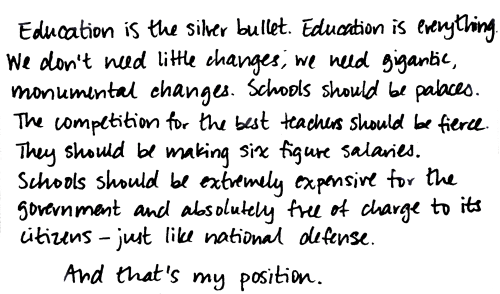 Education is the silver bullet. Education is everything.
We don't need little changes, we need gigantic,
monumental changes. Schools should be palaces.
The competition for the best teachers should be fierce.
They should be making six figure salaries.
Schools should be extremely expensive for the
government and absolutely free of charge to its
citizens – just like national defense.
And that's my position.